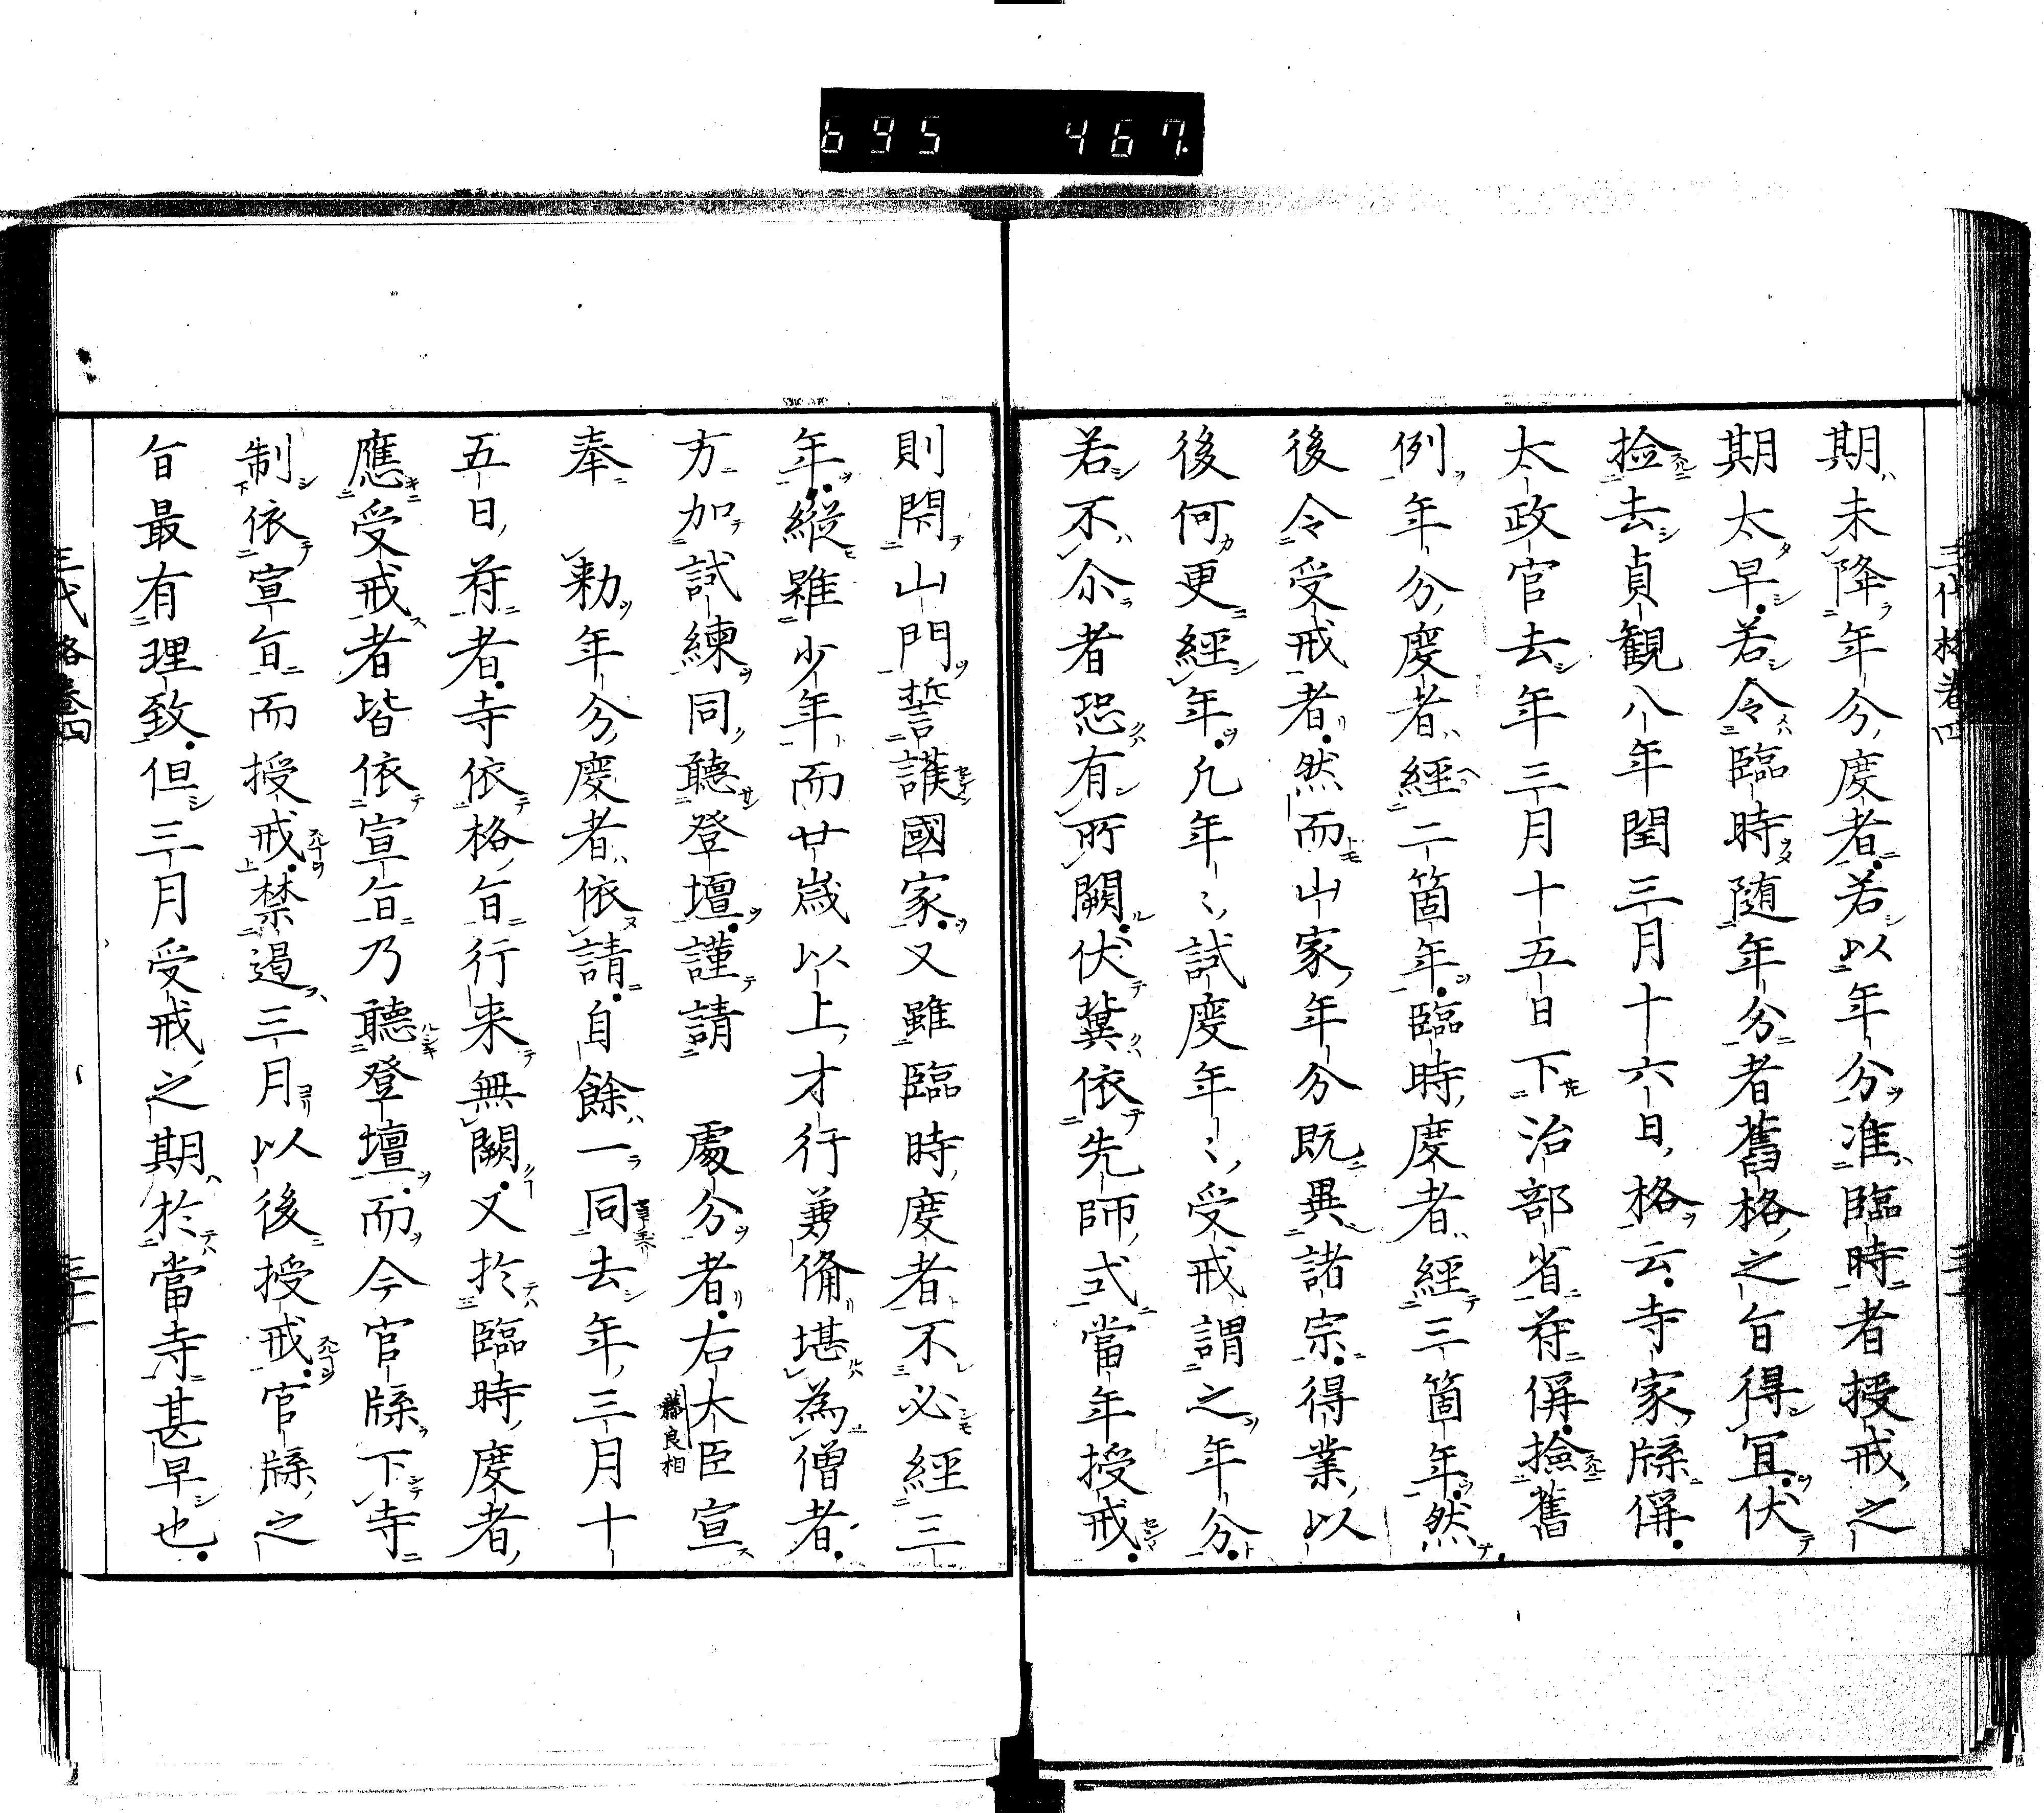 695 467
期未降年分度者若以年分准臨時者授戒之
期太早若令臨時随年分者舊格之旨得冝伏
撿去貞観八年閏三月十六日格云寺家牒偁
太政官去年三月十五日下治部省苻偁撿舊
例年分度者經二箇年臨時度者經三箇年然
後令受戒者然而山家年分既異諸宗得業以
後何更經年凢年〻試度年〻受戒謂之年分
若不尒者恐有所闕伏冀依先師式當年授戒
則閇山門誓護國家又雖臨時度者不必經三
年縦雖少年而廿歳以上才行兼備堪為僧者
方加試練同聽登壇謹請　處分者右大臣宣
藤良相
奉　勅年分度者依請自餘一同去年三月十
五日苻者寺依格旨行来無闕又於臨時度者
應受戒者皆依宣旨乃聽登壇而今官牒下寺
制依宣旨而授戒禁遏三月以後授戒官牒之
旨最有理致但三月受戒之期於當寺甚早也